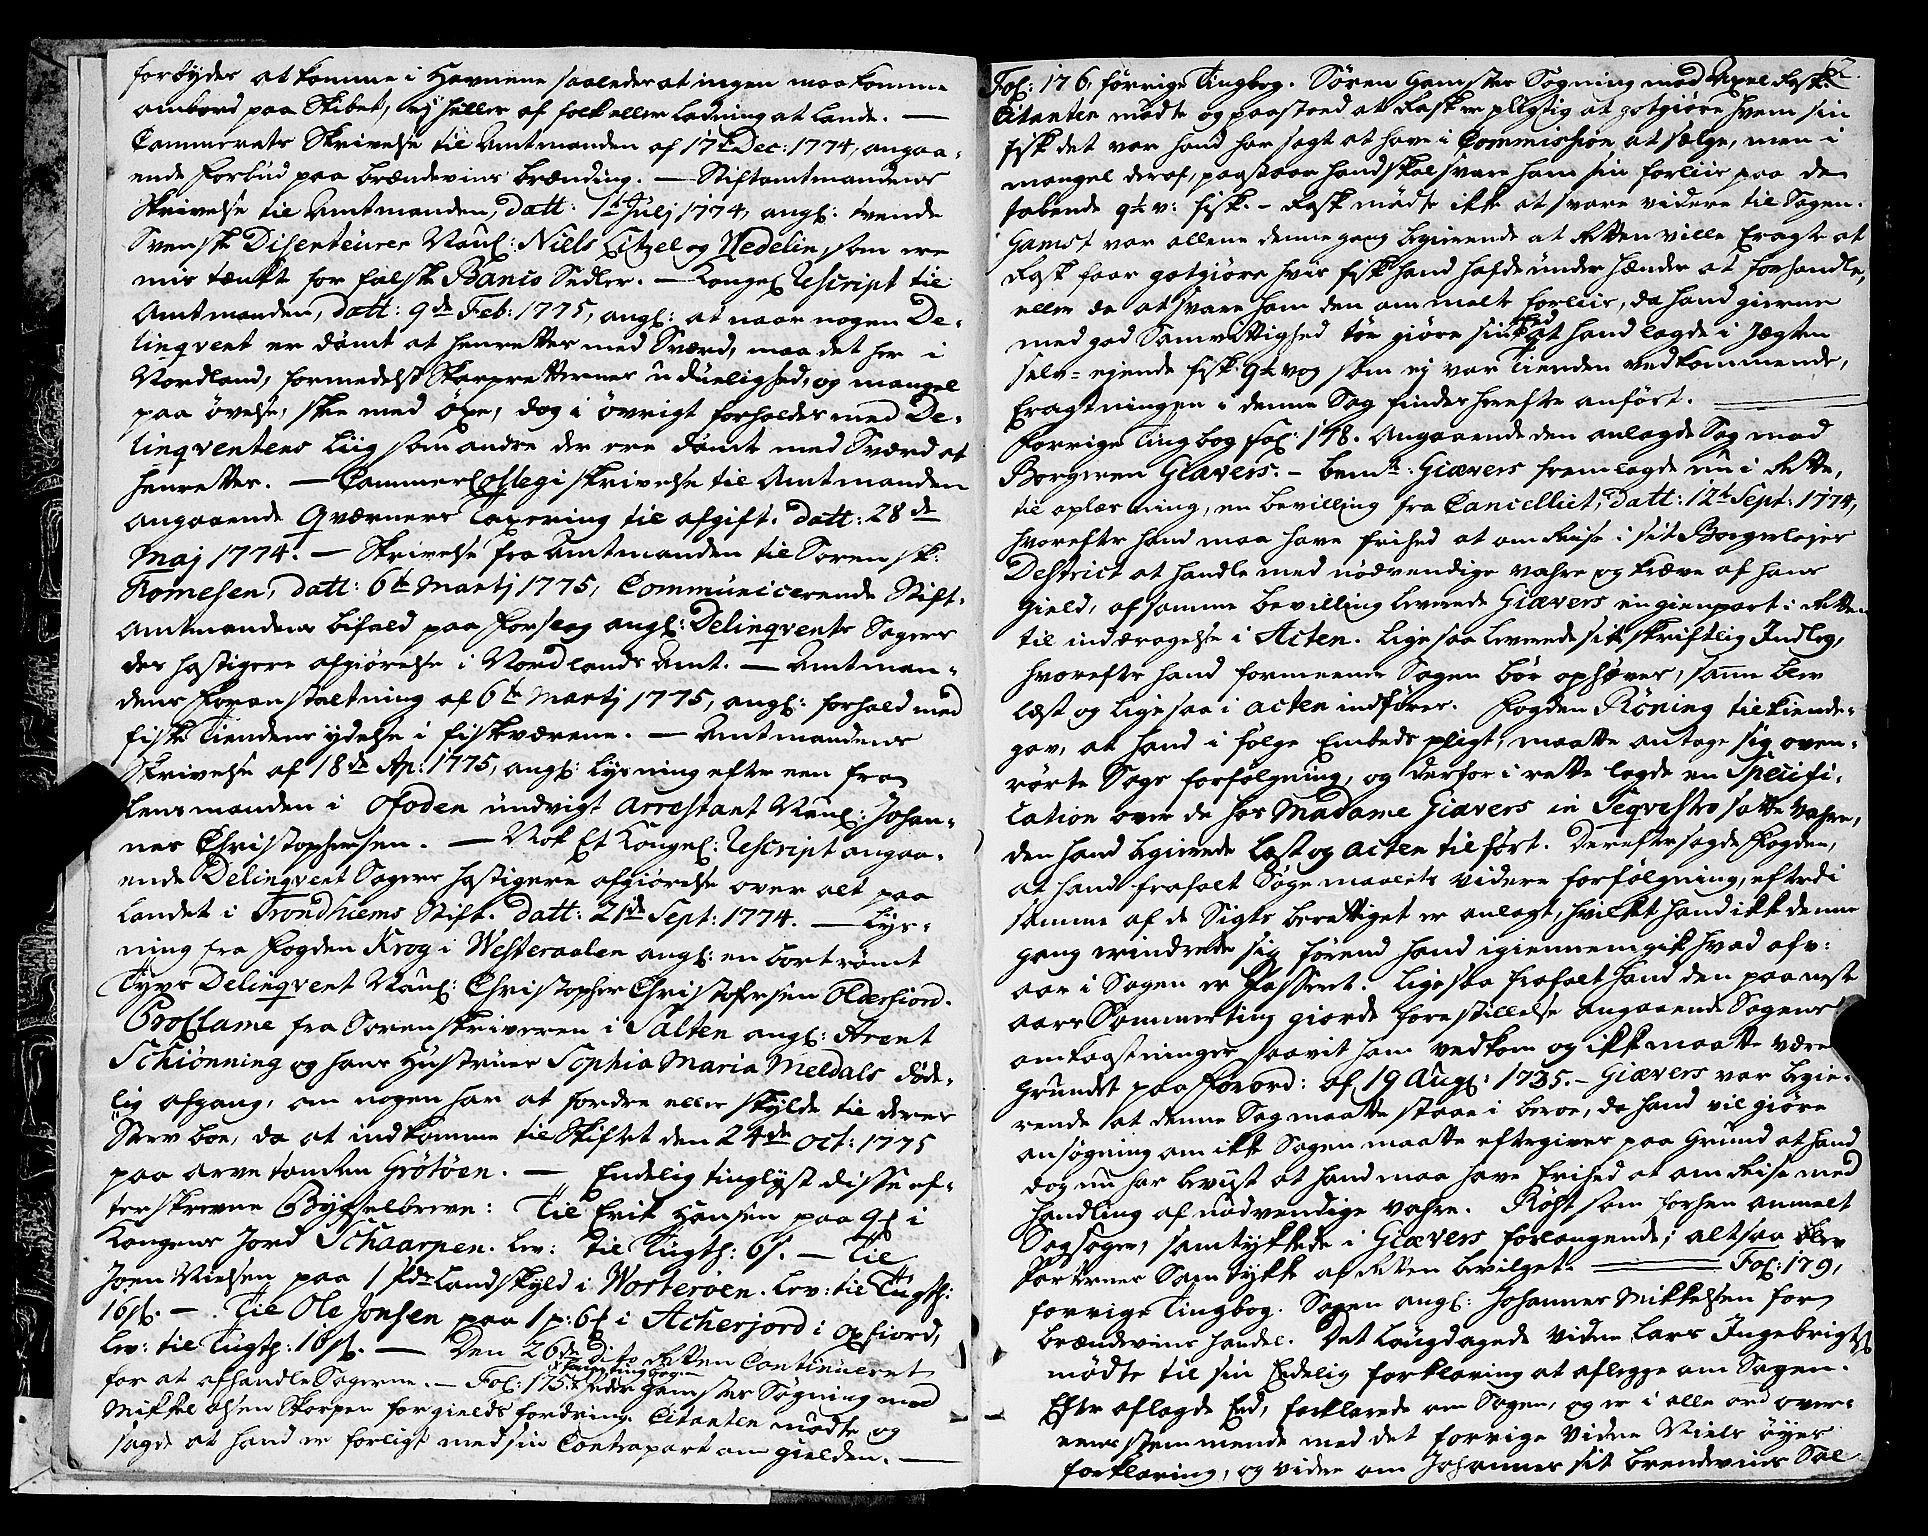 forbydes at komme i Havnene saaledes at ingen maa komme
ombord paa Skibet, ej heller af folk eller Ladning at lande. —
Cammerets Skrivelse til Amtmanden af 17de Dec: 1774, angaa-
ende forbud paa brændeviins brænding. — Stiftamtmandens
Skrivelse til Amtmanden, datt: 1t Julj 1774, ang: tvende
Svenske Disenteurer Naul: Niels Litzel og Wedelin som ere
mis tænkt for falske Banco Sedler. — Kongel: Rescript til
Amtmanden, datt: 9de Feb: 1775, ang: at naar nogen De-
linqvent er dømt at henrettes med Sværd, maa det her i
Nordland, formedelst Skarpretternes uduelighed, og mangel
paa øvelse, skee med øxe, dog i øvrigt forholdes med De-
linqventens Liig som andre der ere dømt med Sværd at
henrettes. — Cammer Collegi skrivelse til Amtmanden
angaaende Qværners Taxering til afgift. datt: 28de
Maj 1774. — Skrivelse fra Amtmanden til Sorensk:
Komesen, datt: 6te Martj 1775, Communicerende Stift-
Amtmandens bifald paa Forslag ang: Delinqvents Sagers
des hastigere afgiørelse i Nordlands Amt. — Amtman-
dens Foranstaltning af 6te Martj 1775, ang: forhold med
fiske Tiendens ydelse i fiskværene. — Amtmandens
Skrivelse af 18de Ap: 1775, ang: Lysning efter een fra
Lensmanden i Ofoden undvigt Arrestant Naul: Johan-
nes Christophersen. — Nok Et Kongel: Rescript angaa-
ende Delinqvent Sagers hastigere afgiørelse over alt paa
Landet i Trondhiems Stift. datt: 21de Sept: 1774. — Lys-
ning fra Fogden Krog i Westeraalen ang: en bortrømt
Tyvs Delinqvent Naul: Christopher Christofersen Olderfiord.
Proclame fra Sorenskriveren i Salten ang: Arent
Schiønning og hans Hustrues Sophia Maria Meldals døde-
lig afgang, om nogen har at fordre eller skylde til deres
Sterv boe, da at indkomme til Skiftet den 24de Oct: 1775
paa arvetomten Grøtøen. — Endelig tinglyst disse ef-
terskrevne Bygselbreve: Til Erik Hansen paa
Kongens Jord Schaarpen. Lev: til Tugth: 6s. — Til
Joen Nielsen paa 1 pd Landskyld i Worterøen. Lev: til Tugth:
16s. — Til Ole Jonsen paa 1 p: i Acherjord i Opfiord,
Lev: til Tugth: 16s. — Den 26de dito Retten Continueret
for at afhandle Sagerne. — Fol: 175 Peder Gamstes Søgning mod
Mikkel Olsen Skarpen for gields fordring. Citanten mødte og
sagde at hand er forligt med sin Contrapart om gielden. —
Fol: 176, forrige Tingbog. Søren Gamstes Søgning mod Axel Rask.
Citanten mødte og paastoed at Rask er pligtig at gotgiøre hvem sin
fisk det var hand har sagt at have i Commishion at sælge, men i
mangel deraf, paastaar hand skal svare ham sin forliis paa de
tabende fisk. — Rask mødte ikke at svare videre til Sagen.
Gamst var allene denne gang begierende at Retten ville Eragte at
Rask faar gotgiøre hvis fisk hand hafde under hænder at forhandle,
eller da at svare ham den ommelte forliis, da hand gierne
med god Samvittighed tør giøre sin Eed at hand lagde i Jægten
selv-ejende fisk som ej var Tienden vedkommende,
Eragtningen i denne Sag findes herefter anført.
forrige Tingbog fol: 178. Angaaende den anlagde Sag mod
Borgeren Giævers. — bemte: Giævers fremlagde nu i Rette,
til oplæsning, en bevilling fra Cancelliet, datt: 12te Sept: 1774,
hvorefter hand maa have frihed at omreise i sit Borgerlejes
District at handle med nødvendige vahre og kræve af hans
Gield, af samme bevilling leverede Giævers en gienpart i Retten
til inddragelse i Acten. Ligesaa leverede sit skriftlig Indleg,
hvorefter hand formeente Sagen bør ophæves, samme blev
læst og ligesaa i acten indføres. Fogden Røning tilkiende-
gav, at hand i følge Embeds pligt, maatte antage sig oven-
rørte Sags forfølgning, og derfor i rette lagde en Specifi-
cation over de hos Madame Giævers in Seqvestro satte Vahre,
den hand begierede Læst og acten tilført. Derefter sagde Fogden,
at hand frafalt Søgemaalets videre forfølgning, efterdi
samme af de Sigtes berettiget er anlagt, hvilket hand ikke denne
gang erindrede sig førend hand igiennemgik hvad afv:
aar i Sagen er Passeret. Ligesaa frafalt hand den paa nest
aars Sommerting giorde forestillelse angaaende Sagens
omkaastninger saavit ham vedkom og ikke maatte være
Grundet paa Forord: af 19 Aug: 1735. — Giævers var begie-
rende at denne Sag maatte staae i beroe, da hand vil giøre
ansøgning om ikke Sagen maatte eftergives paa Grund at hand
dog nu har beviist at hand maa have frihed at omreise med
Handling af nødvendige Vahre. Røst som forhen anmelt
Sagsøger, samtykkede i Giævers forlangende; altsaa blev
Parternes Samtykke af Retten bevilget. — Fol: 179,
forrige Tingbog. Sagen ang: Johannes Mikkelsen for
brændeviins handel. Det Laugdagede vidne Lars Ingebrigts
mødte til sin Eedelig forklaring at aflegge om Sagen.
Efter aflagde Eed, forklarede om Sagen, og er i alle ord over-
eens stemmende med det forrige vidne Niels øyes
forklaring, og videre om Johannes sit brendeviins Sal